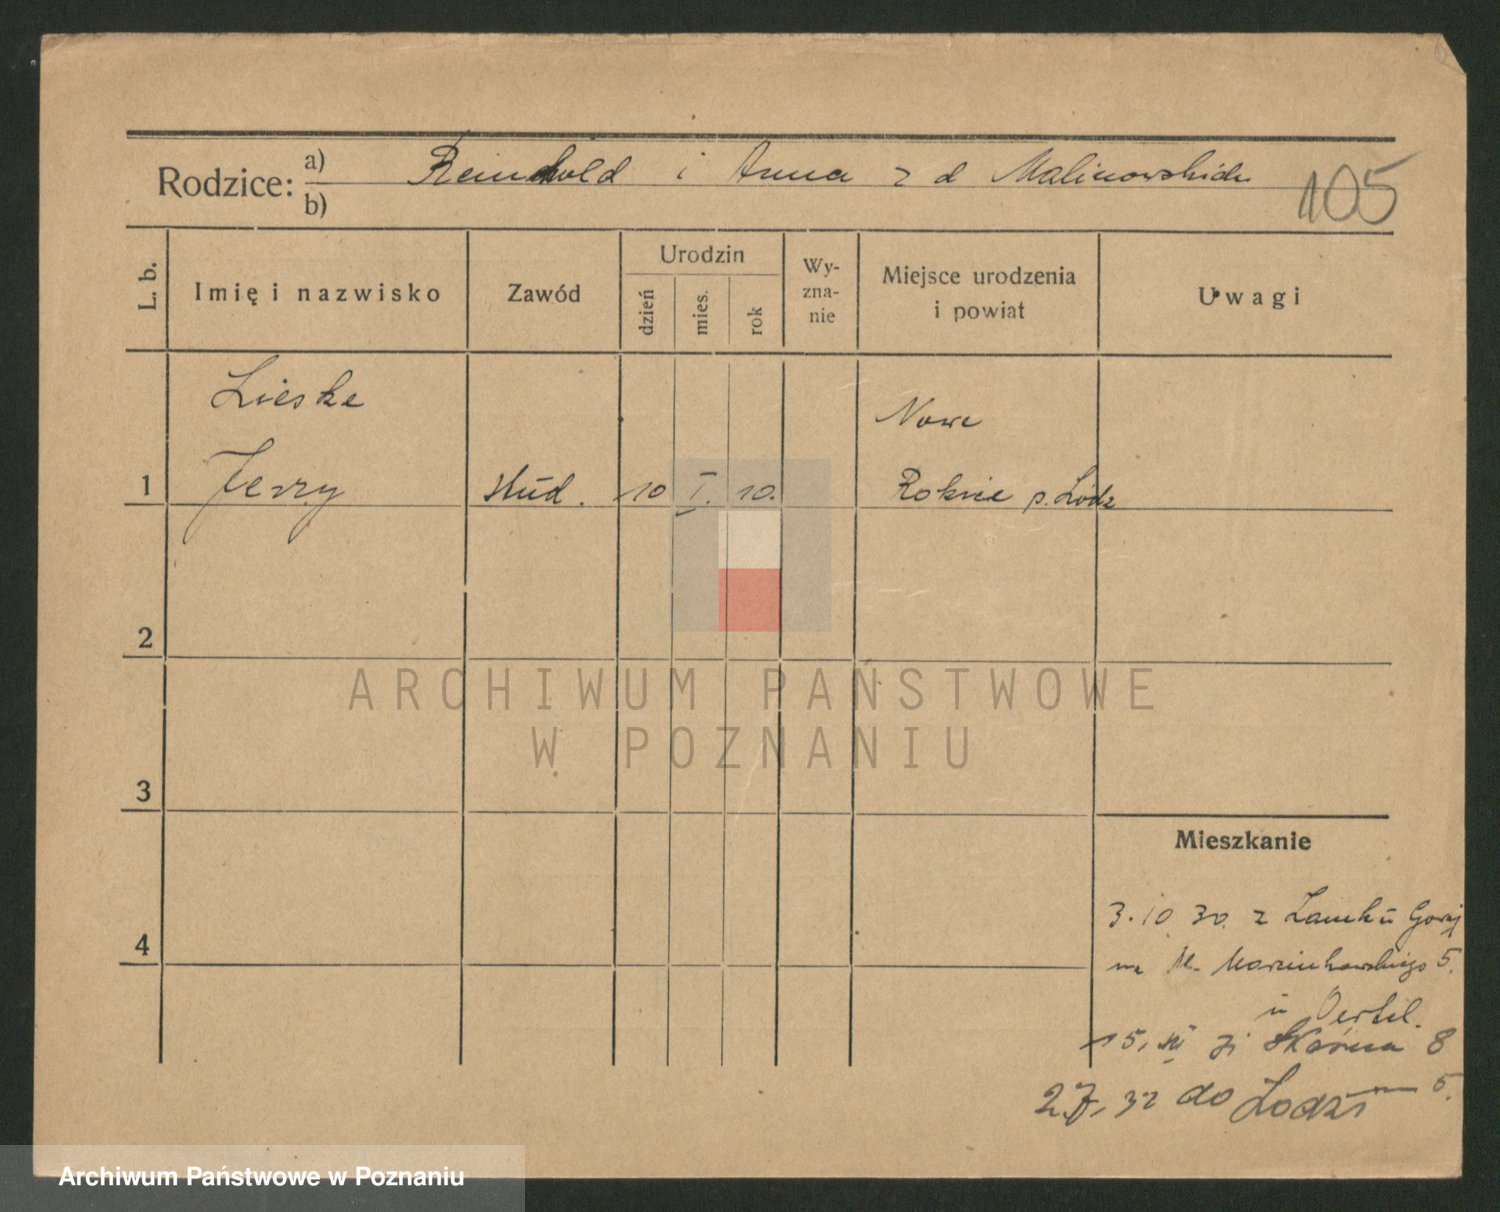 Rodzice: a) Reinhold i Anna z d Malinowskich
b)
105
L. b. Imię i nazwisko Zawód Urodzin dzień mies. rok Wyznanie Miejsce urodzenia i powiat Uwagi
Lieske Nowe
1 Jerzy stud. 10 I. 10. Rokicie p. Łódz
2
ARCHIWUM PAŃSTWOWE
W POZNANIU
3
Mieszkanie
3.10.30. z Zamku
4
na Marcinkowskiego 5.
u Oertel.
15, 31 Skórna 8
27, 32 do Łodzi 5.
Archiwum Państwowe w Poznaniu